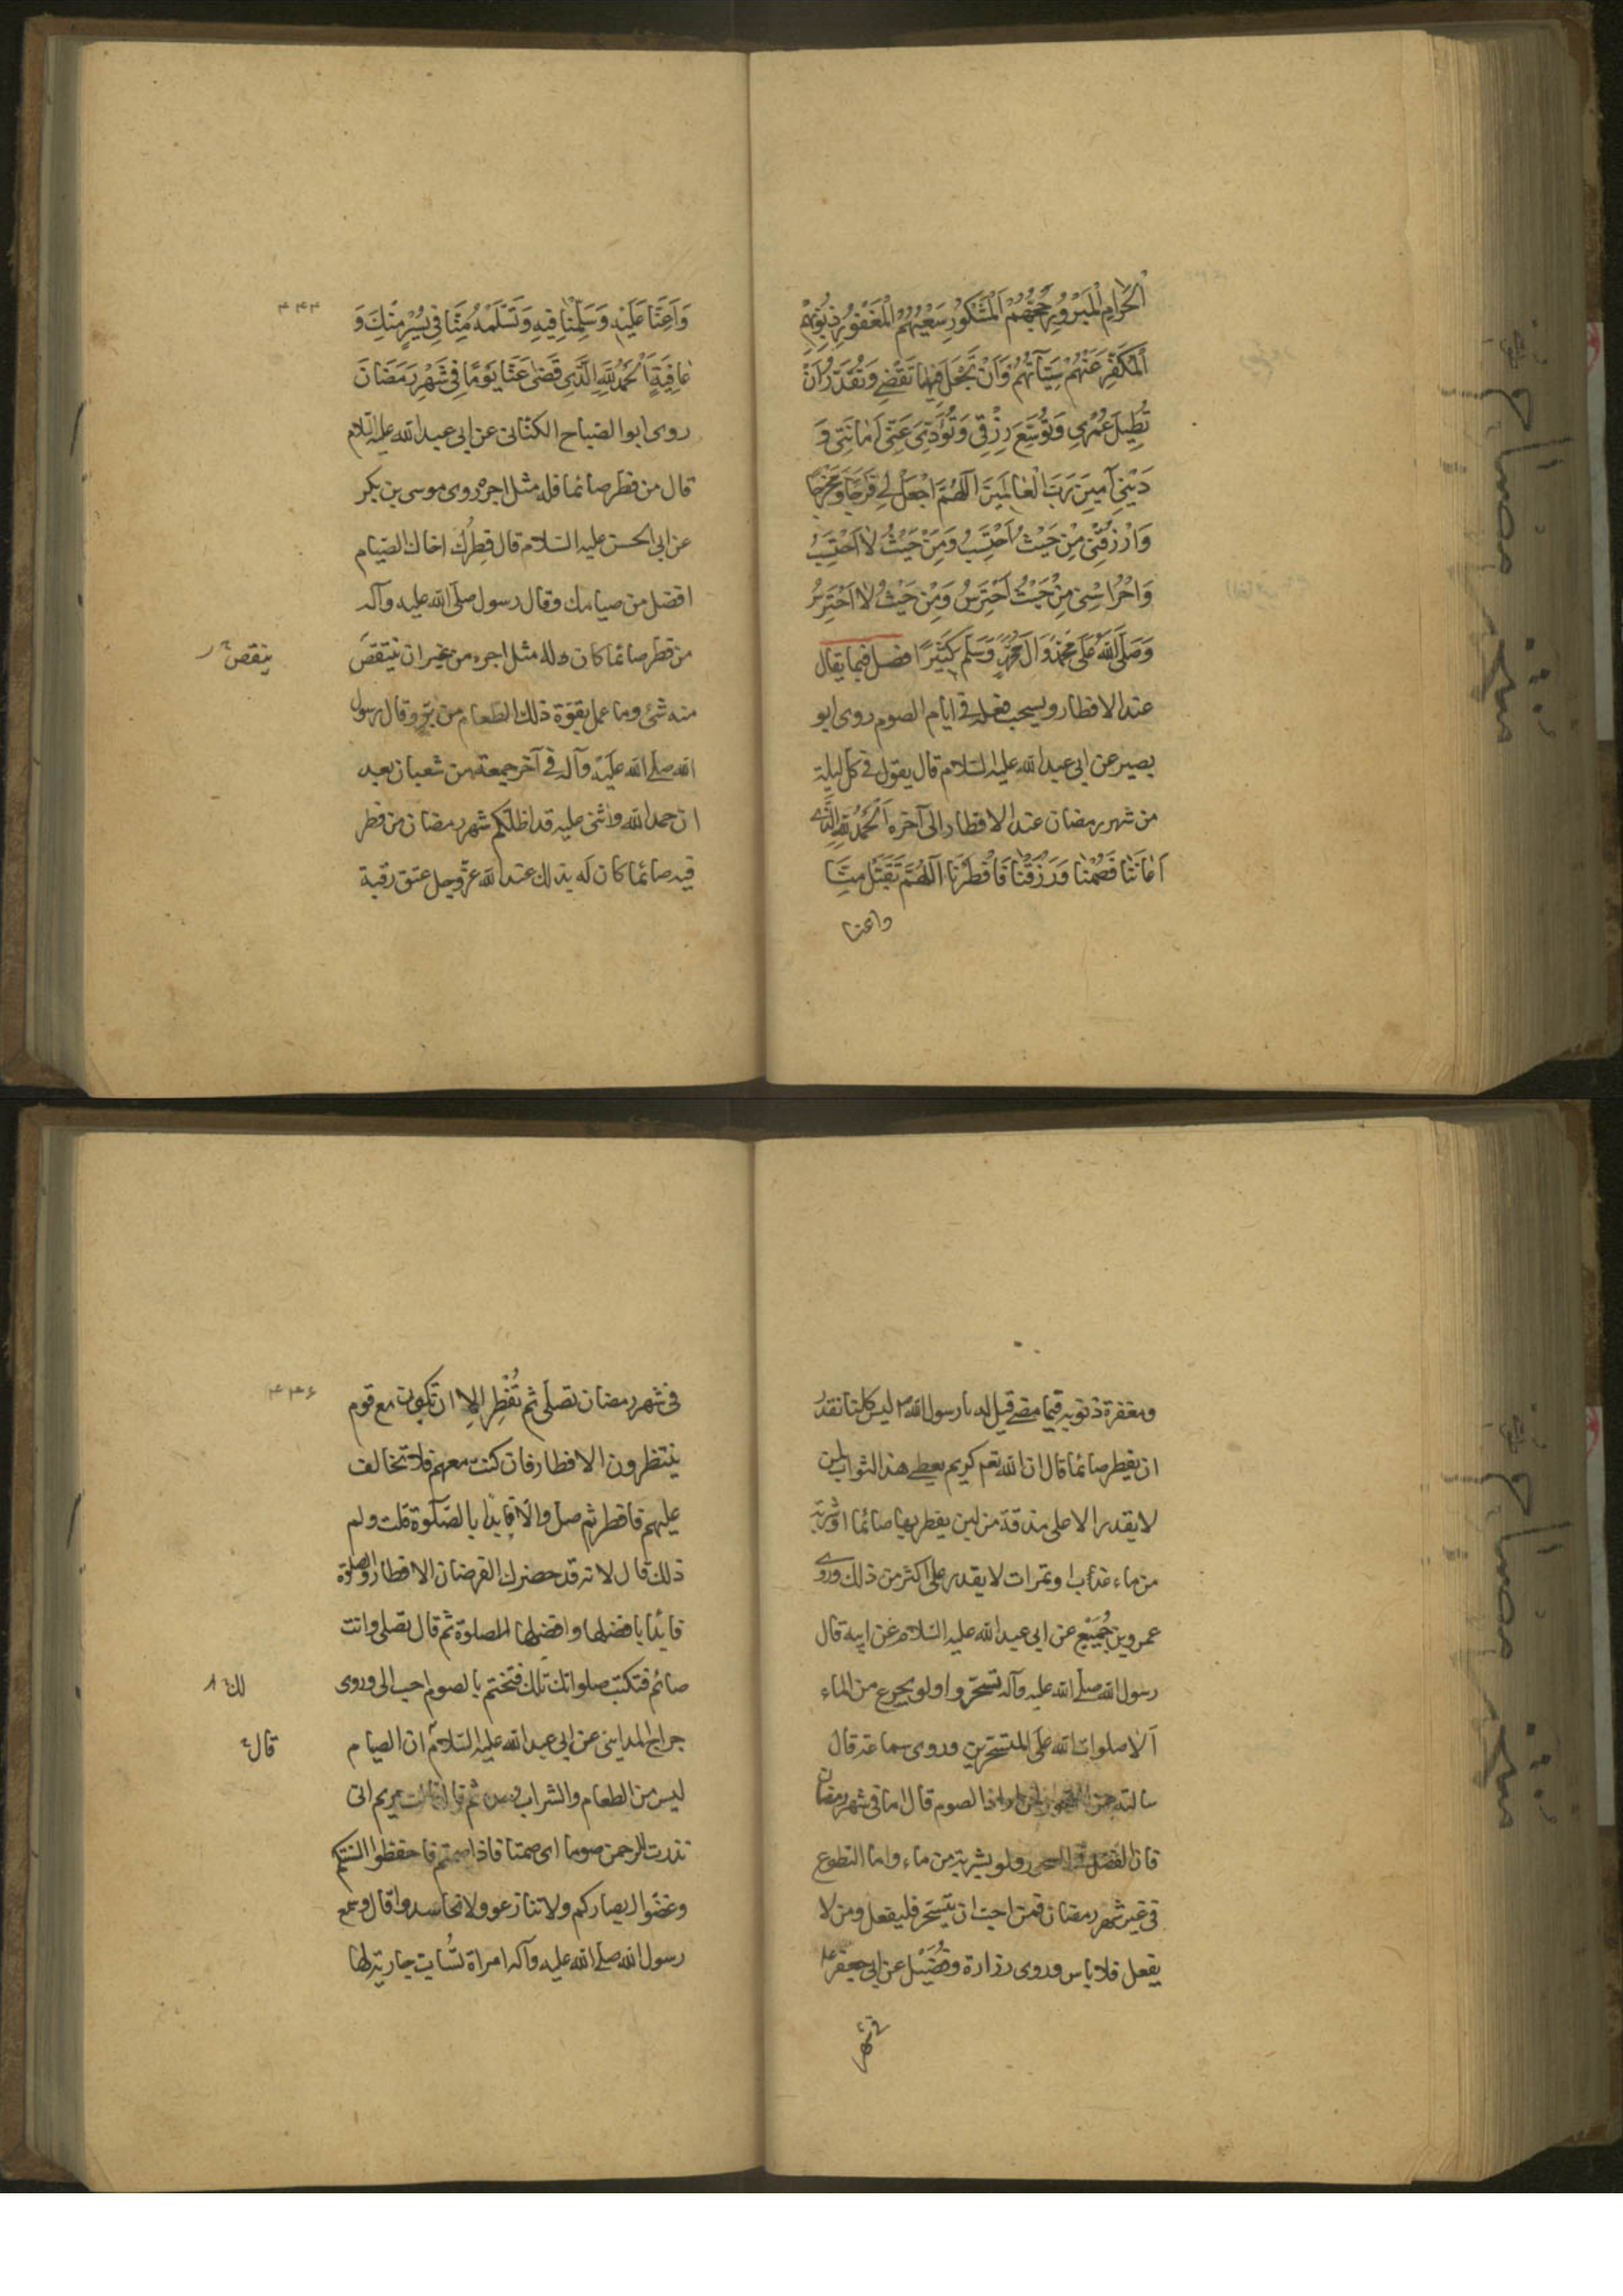 اَلْحَرامِ الْمَبْرُورِ حَجُّهُمْ الْمَشْكُورِ سَعْيُهُمُ الْمَغْفُورِ ذُنُوبُهُمْ
اَلْمُكَفَّرِ عَنْهُمْ سَيِّآتُهُمْ وَاَنْ تَجْعَلَ فِيما تَقْضي وَتُقَدِّرُ اَنْ
تُطِيلَ عُمْري وَتُوَسِّعَ رِزْقي وَتُؤَدِّيَ عَنّي اَمانَتي وَ
دَيْني آمينَ رَبَّ الْعالَمينَ اَللّهُمَّ اجْعَلْ لي فَرَجًا وَمَخْرَجًا
وَارْزُقْني مِنْ حَيْثُ اَحْتَسِبُ وَمِنْ حَيْثُ لا اَحْتَسِبُ
وَاحْرُسْني مِنْ حَيْثُ اَحْتَرِسُ وَمِنْ حَيْثُ لا اَحْتَرِسُ
وَصَلَّى اللّهُ عَلى مُحَمَّدٍ وَآلِ مُحَمَّدٍ وَسَلَّمَ كَثيرًا فصل فيما يقال
عند الافطار ويستحب فعله في ايام الصوم روى ابو
بصير عن ابي عبد الله عليه السلام قال يقول في كل ليلة
من شهر رمضان عند الافطار الى آخره اَلْحَمْدُ لِلّهِ الَّذي
اَعانَنا فَصُمْنا وَرَزَقَنا فَاَفْطَرْنا اَللّهُمَّ تَقَبَّلْ مِنّا
واعنا
۴۴۳
وَاَعِنّا عَلَيْهِ وَسَلِّمْنا فيهِ وَتَسَلَّمْهُ مِنّا في يُسْرٍ مِنْكَ وَ
عافِيَةٍ اَلْحَمْدُ لِلّهِ الَّذي قَضى عَنّا يَوْمًا في شَهْرِ رَمَضانَ
روى ابو الصباح الكنانى عن ابي عبد الله عليه السلام
قال من فطر صائما فله مثل اجره وروى موسى بن بكر
عن ابي الحسن عليه السلام قال فطرك اخاك الصيام
افضل من صيامك وقال رسول صلى الله عليه وآله
من فطر صائما كان له مثل اجره من غير ان ينتقص
ينقص
منه شئ وما عمل بقوة ذلك الطعام من بر وقال رسول
الله صلى الله عليه وآله في آخر جمعة من شعبان بعد
ان حمد الله واثنى عليه قد اظلكم شهر رمضان من فطر
فيه صائما كان له بذلك عند الله عز وجل عتق رقبة
ومغفرة ذنوبه فيما مضى قيل له يا رسول الله ليس كلنا نقدر
ان يفطر صائما قال ان الله تعم كريم يعطى هذا الثواب لمن
لا يقدر الا على مذقة من لبن يفطر بها صائما او شربة
من ماء عذب او تمرات لا يقدر على اكثر من ذلك وروى
عمرو بن جُمَيْع عن ابي عبد الله عليه السلام عن ابيه قال
رسول الله صلى الله عليه وآله تسحروا ولو بجرع من الماء
الا صلوات الله على المتسحرين وروى سماعة قال
سالته عن السحور لمن اراد الصوم قال اما في شهر رمضان
فان الفضل في السحور ولو بشربة من ماء واما التطوع
في غير شهر رمضان فمن احب ان يتسحر فليفعل ومن لا
يفعل فلا باس وروى زرارة وفُضَيْل عن ابي جعفر
في شهر
۴۴۶
في شهر رمضان تصلى ثم تُفْطِر الا ان تكون مع قوم
ينتظرون الافطار فان كنت معهم فلا تخالف
عليهم فافطر ثم صل والا فابدا بالصلوة قلت ولم
ذلك قال لانه قد حضرك الفرضان الافطار والصلوة
فابدا بافضلهما وافضلهما الصلوة ثم قال تصلى وانت
صائم فتكتب صلواتك تلك فتختم بالصوم احب الى وروى
لك
جراح المداينى عن ابي عبد الله عليه السلام ان الصيام
قال
ليس من الطعام والشراب ثم قال قالت مريم انى
نذرت للرحمن صوما اى صمتا فاذا صمتم فاحفظوا السنتكم
وغضوا ابصاركم ولا تنازعوا ولا تحاسدوا قال وسمع
رسول الله صلى الله عليه وآله امراة تُساب جارية لها